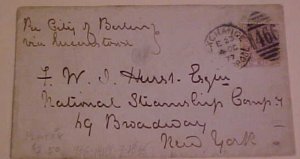 Per City of Berlin
via Queenstown
F. W. J. Hurst Esqre
National Steamship Compy
69 Broadway
New York
EXCHANGE
466